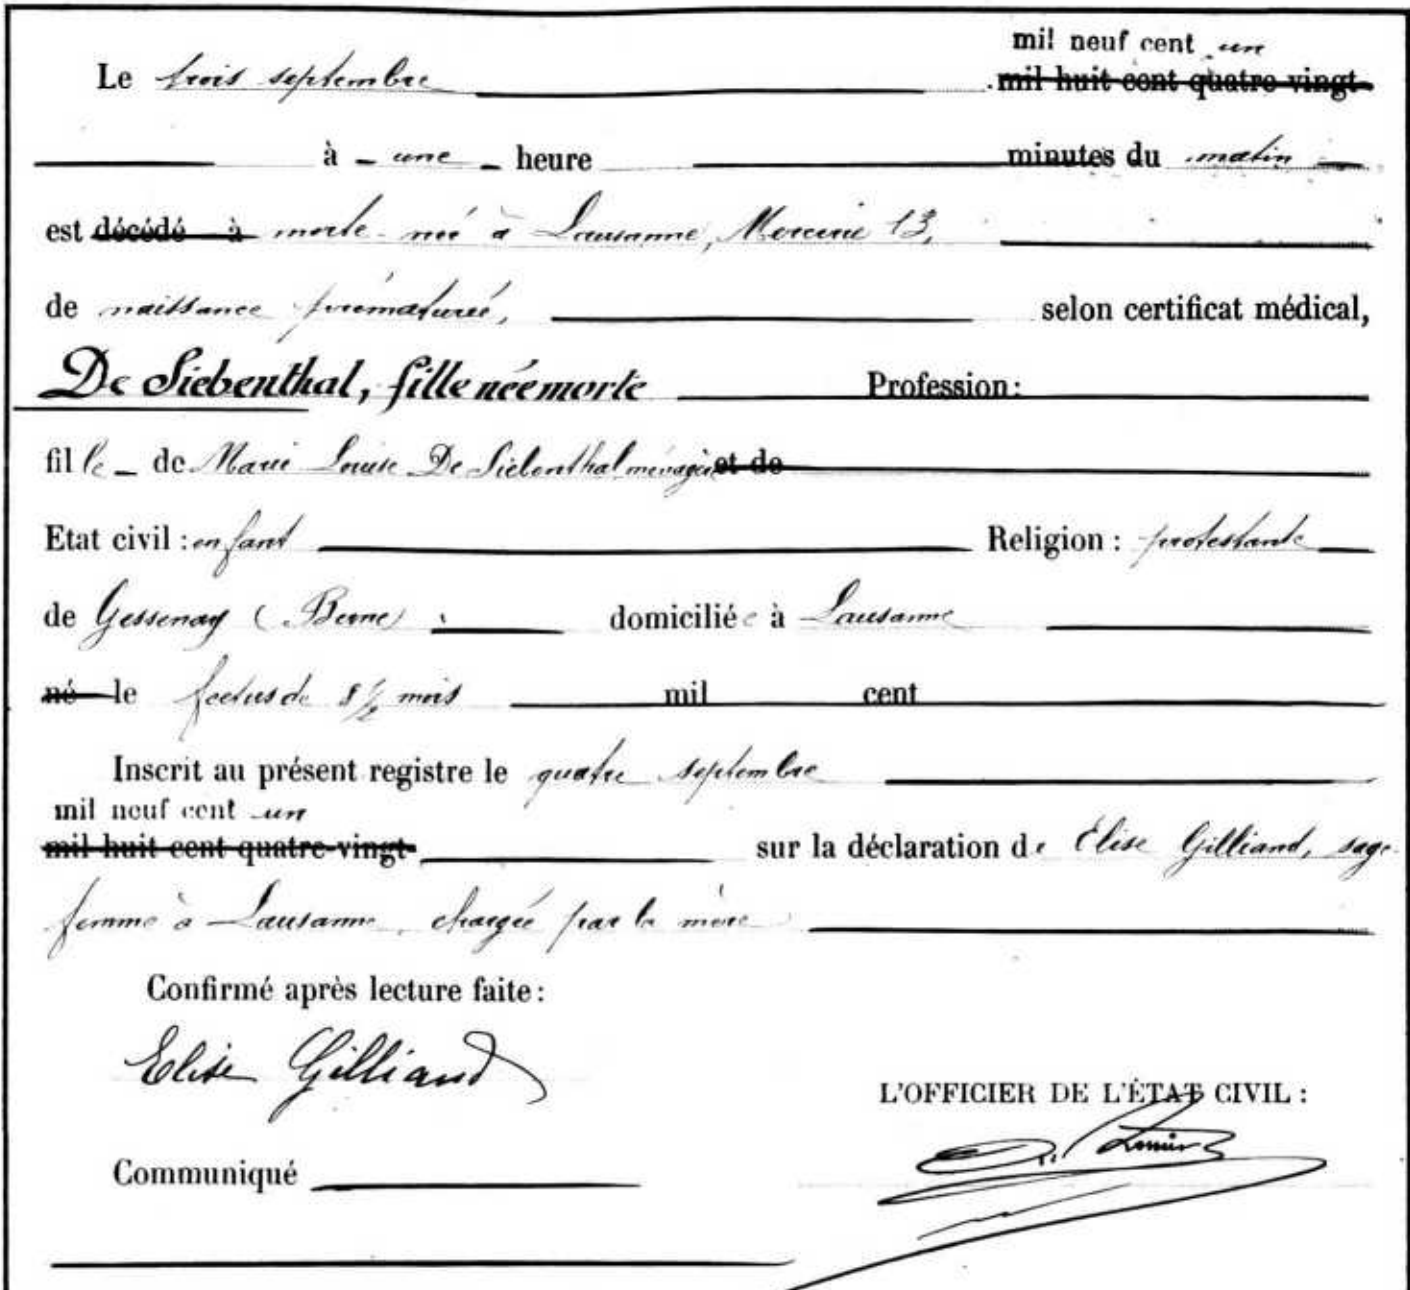 mil neuf cent un
Le trois septembre mil huit cent quatre-vingt-
à une heure minutes du matin
est décédé à morte-née à Lausanne, Mercerie 13,
de naissance prématurée, selon certificat médical,
De Siebenthal, fille née morte Profession:
fille de Marie Louise De Siebenthal ménagère et de
Etat civil: enfant Religion: protestante
de Gessenay (Berne) domiciliée à Lausanne
né le foetus de 8 1/2 mois mil cent
Inscrit au présent registre le quatre septembre
mil neuf cent un
mil huit cent quatre-vingt- sur la déclaration de Elise Gilliand, sage-
femme à Lausanne, chargée par la mère
Confirmé après lecture faite:
Elise Gilliand
L'OFFICIER DE L'ÉTAT CIVIL:
Communiqué